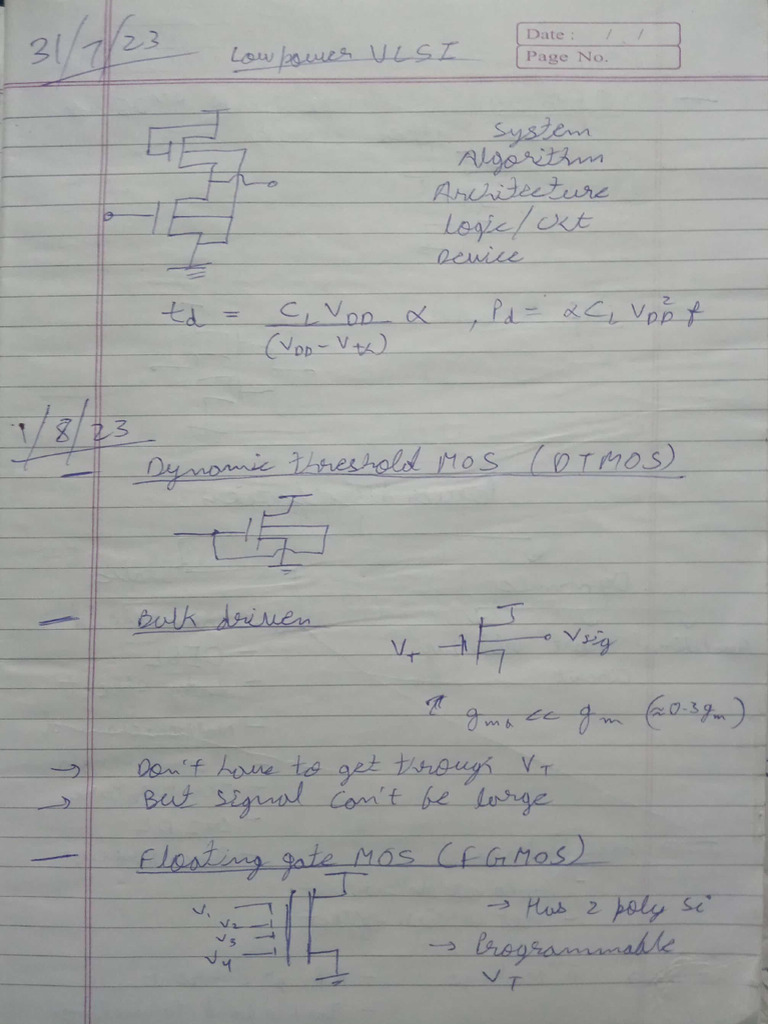 31/7/23
Low power VLSI
Date : / /
Page No.
System
Algorithm
Architecture
Logic/Ckt
Device
td = CL VDD / (VDD - Vth) α , Pd = αCL VDD² f
1/8/23
— Dynamic threshold MOS (DTMOS)
— Bulk driven
VT Vsig
gmb << gm (≈0.3gm)
→ Don't have to get through VT
→ But signal can't be large
— Floating gate MOS (FGMOS)
V1
V2
V3
V4
→ Has 2 poly Si
→ Programmable
VT